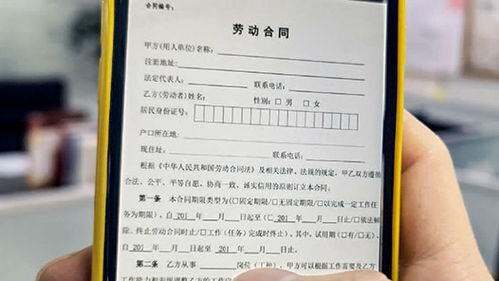 合同编号：
劳动合同
甲方(用人单位)名称：
注册地址：
法定代表人： 联系电话：
乙方(劳动者)姓名： 性别：□男 □女
居民身份证号：
户口所在地：
现住址： 联系电话：
根据《中华人民共和国劳动合同法》及相关法律、法规的规定，甲乙双方遵循
合法、公平、平等自愿、协商一致、诚实信用的原则订立本合同。
第一条 本合同期限类型为(□固定期限/□无固定期限/□以完成一定工作任
务为期限)，自201 年 月 日起至(□201 年 月 日止/□依法解
除、终止劳动合同时止/□工作(任务)完成时终止)。其中，试用期(□有/□无)，
自 201 年 月 日起至 201 年 月 日止。
第二条 乙方从事 岗位(工种)，甲方可以根据工作需要及乙方